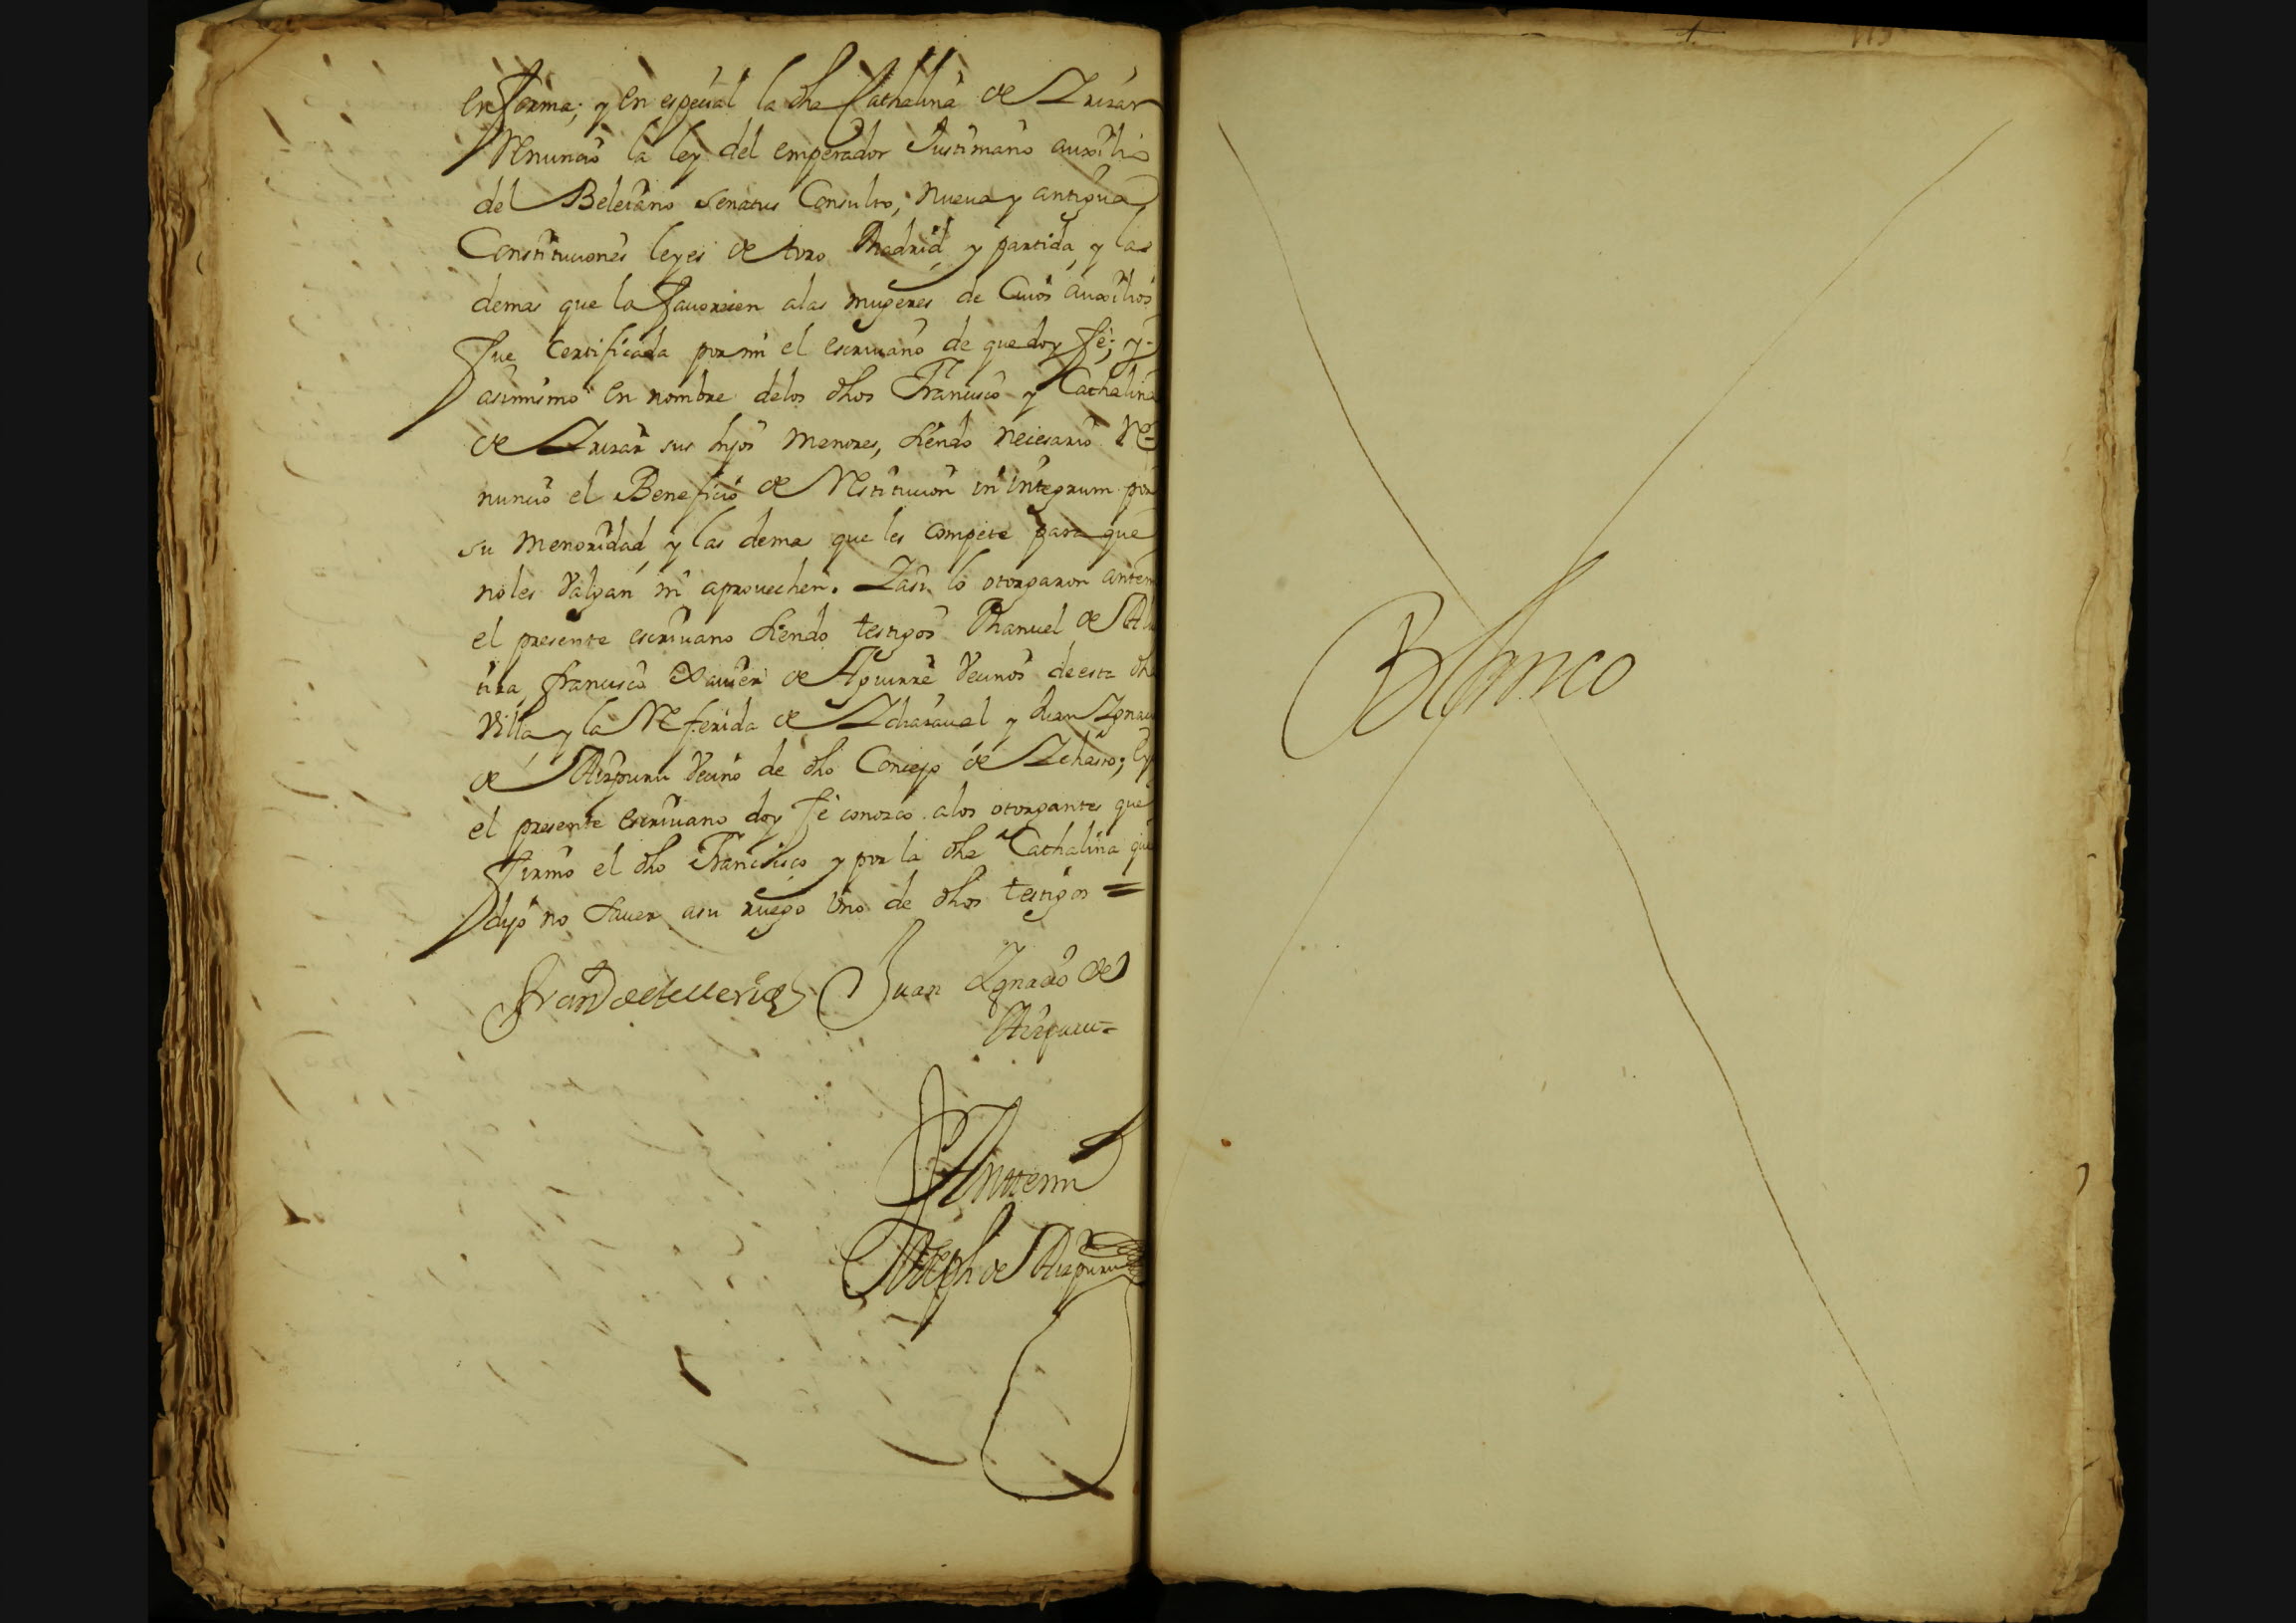 en forma; y en especial la dha Cathalina de Yrizar
Renuncio la ley del emperador Justiniano auxilio
del Beleiano Senatus Consulto, nueua y antigua
Constituciones leyes de toro Madrid, y partida, y las
demas que la fauorecen alas mugeres de Cuios auxilios
fue certificada por mi el escriuano de que doy fe; y
asimismo en nombre delos dhos Francisco y Cathalina
de Yrizar sus hijos menores, siendo necesario Re
nuncio el Beneficio de Restitucion in integrum por
su menoridad, y las demas que les compete para que
no les Valgan ni aprouechen. Yasi lo otorgaron antemi
el presente escriuano siendo testigos Manuel de
Francisco Xauier de Aguirre Vecinos de esta dha
Villa y la Referida de Echarauel y Juan Ygnacio
de Aizpuru Vecino de dho Concejo de; Ey
el presente escriuano doy fe conozco alos otorgantes que
firmo el dho Francisco y por la dha Cathalina que
dijo no sauer asu ruego Uno de dhos testigos =
Juan Ygnacio de
Aizpuru =
Anttemi
Joseph de Aizpuru
115
Blanco